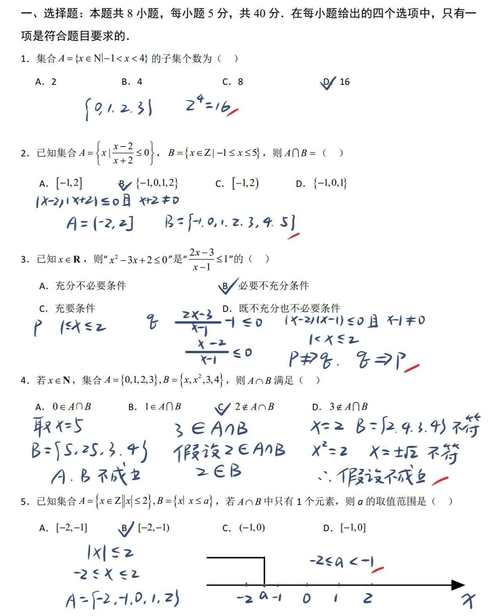 一、选择题：本题共 8 小题，每小题 5 分，共 40 分．在每小题给出的四个选项中，只有一
项是符合题目要求的．
1．集合 A={x∈N|-1<x<4} 的子集个数为（ ）
A．2 B．4 C．8 D．16
{0,1.2.3} 2⁴=16
2．已知集合 A={x|(x-2)/(x+2)≤0}，B={x∈Z|-1≤x≤5}，则 A∩B=（ ）
A．[-1,2] B．{-1,0,1,2} C．[-1,2) D．{-1,0,1}
(x-2)(x+2)≤0且 x+2≠0
A=(-2,2] B={-1.0,1.2.3,4.5}
3．已知 x∈R，则“x²-3x+2≤0”是“(2x-3)/(x-1)≤1”的（ ）
A．充分不必要条件 B．必要不充分条件
C．充要条件 D．既不充分也不必要条件
P 1≤x≤2 q (2x-3)/(x-1) -1≤0 (x-2)(x-1)≤0且 x-1≠0
(x-2)/(x-1) ≤0 1<x≤2
P⇏q. q⇒P
4．若 x∈N，集合 A={0,1,2,3},B={x,x²,3,4}，则 A∩B 满足（ ）
A．0∈A∩B B．1∈A∩B C．2∉A∩B D．3∉A∩B
取x=5 3∈A∩B x=2 B={2.4.3.4} 不符
B={5,25,3.4} 假设2∈A∩B x²=2 x=±√2 不符
A.B不成立 2∈B ∴假设不成立
5．已知集合 A={x∈Z||x|≤2},B={x|x≤a}，若 A∩B 中只有 1 个元素，则 a 的取值范围是（ ）
A．[-2,-1] B．[-2,-1) C．(-1,0) D．[-1,0]
|x|≤2 -2≤a<-1
-2≤x≤2
A={-2,-1,0,1,2} -2 a -1 0 1 2 x